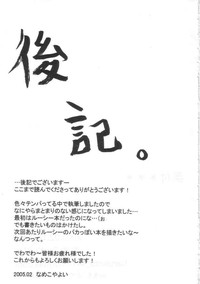 後
記。
…後記でございますー
ここまで読んでくださってありがとうございます！
色々テンパってる中で執筆しましたので
なにやらまとまりのない感じになってしまいました…
最初はルーシー本だったのにな…（お
でも書きたいものはかけたし、
次回あたりルーシーのバカっぽい本を描きたいな～
なんつって。
でわでわー皆様お疲れ様でした！
これからもよろしくお願いします！
2005.02 なめこやよい